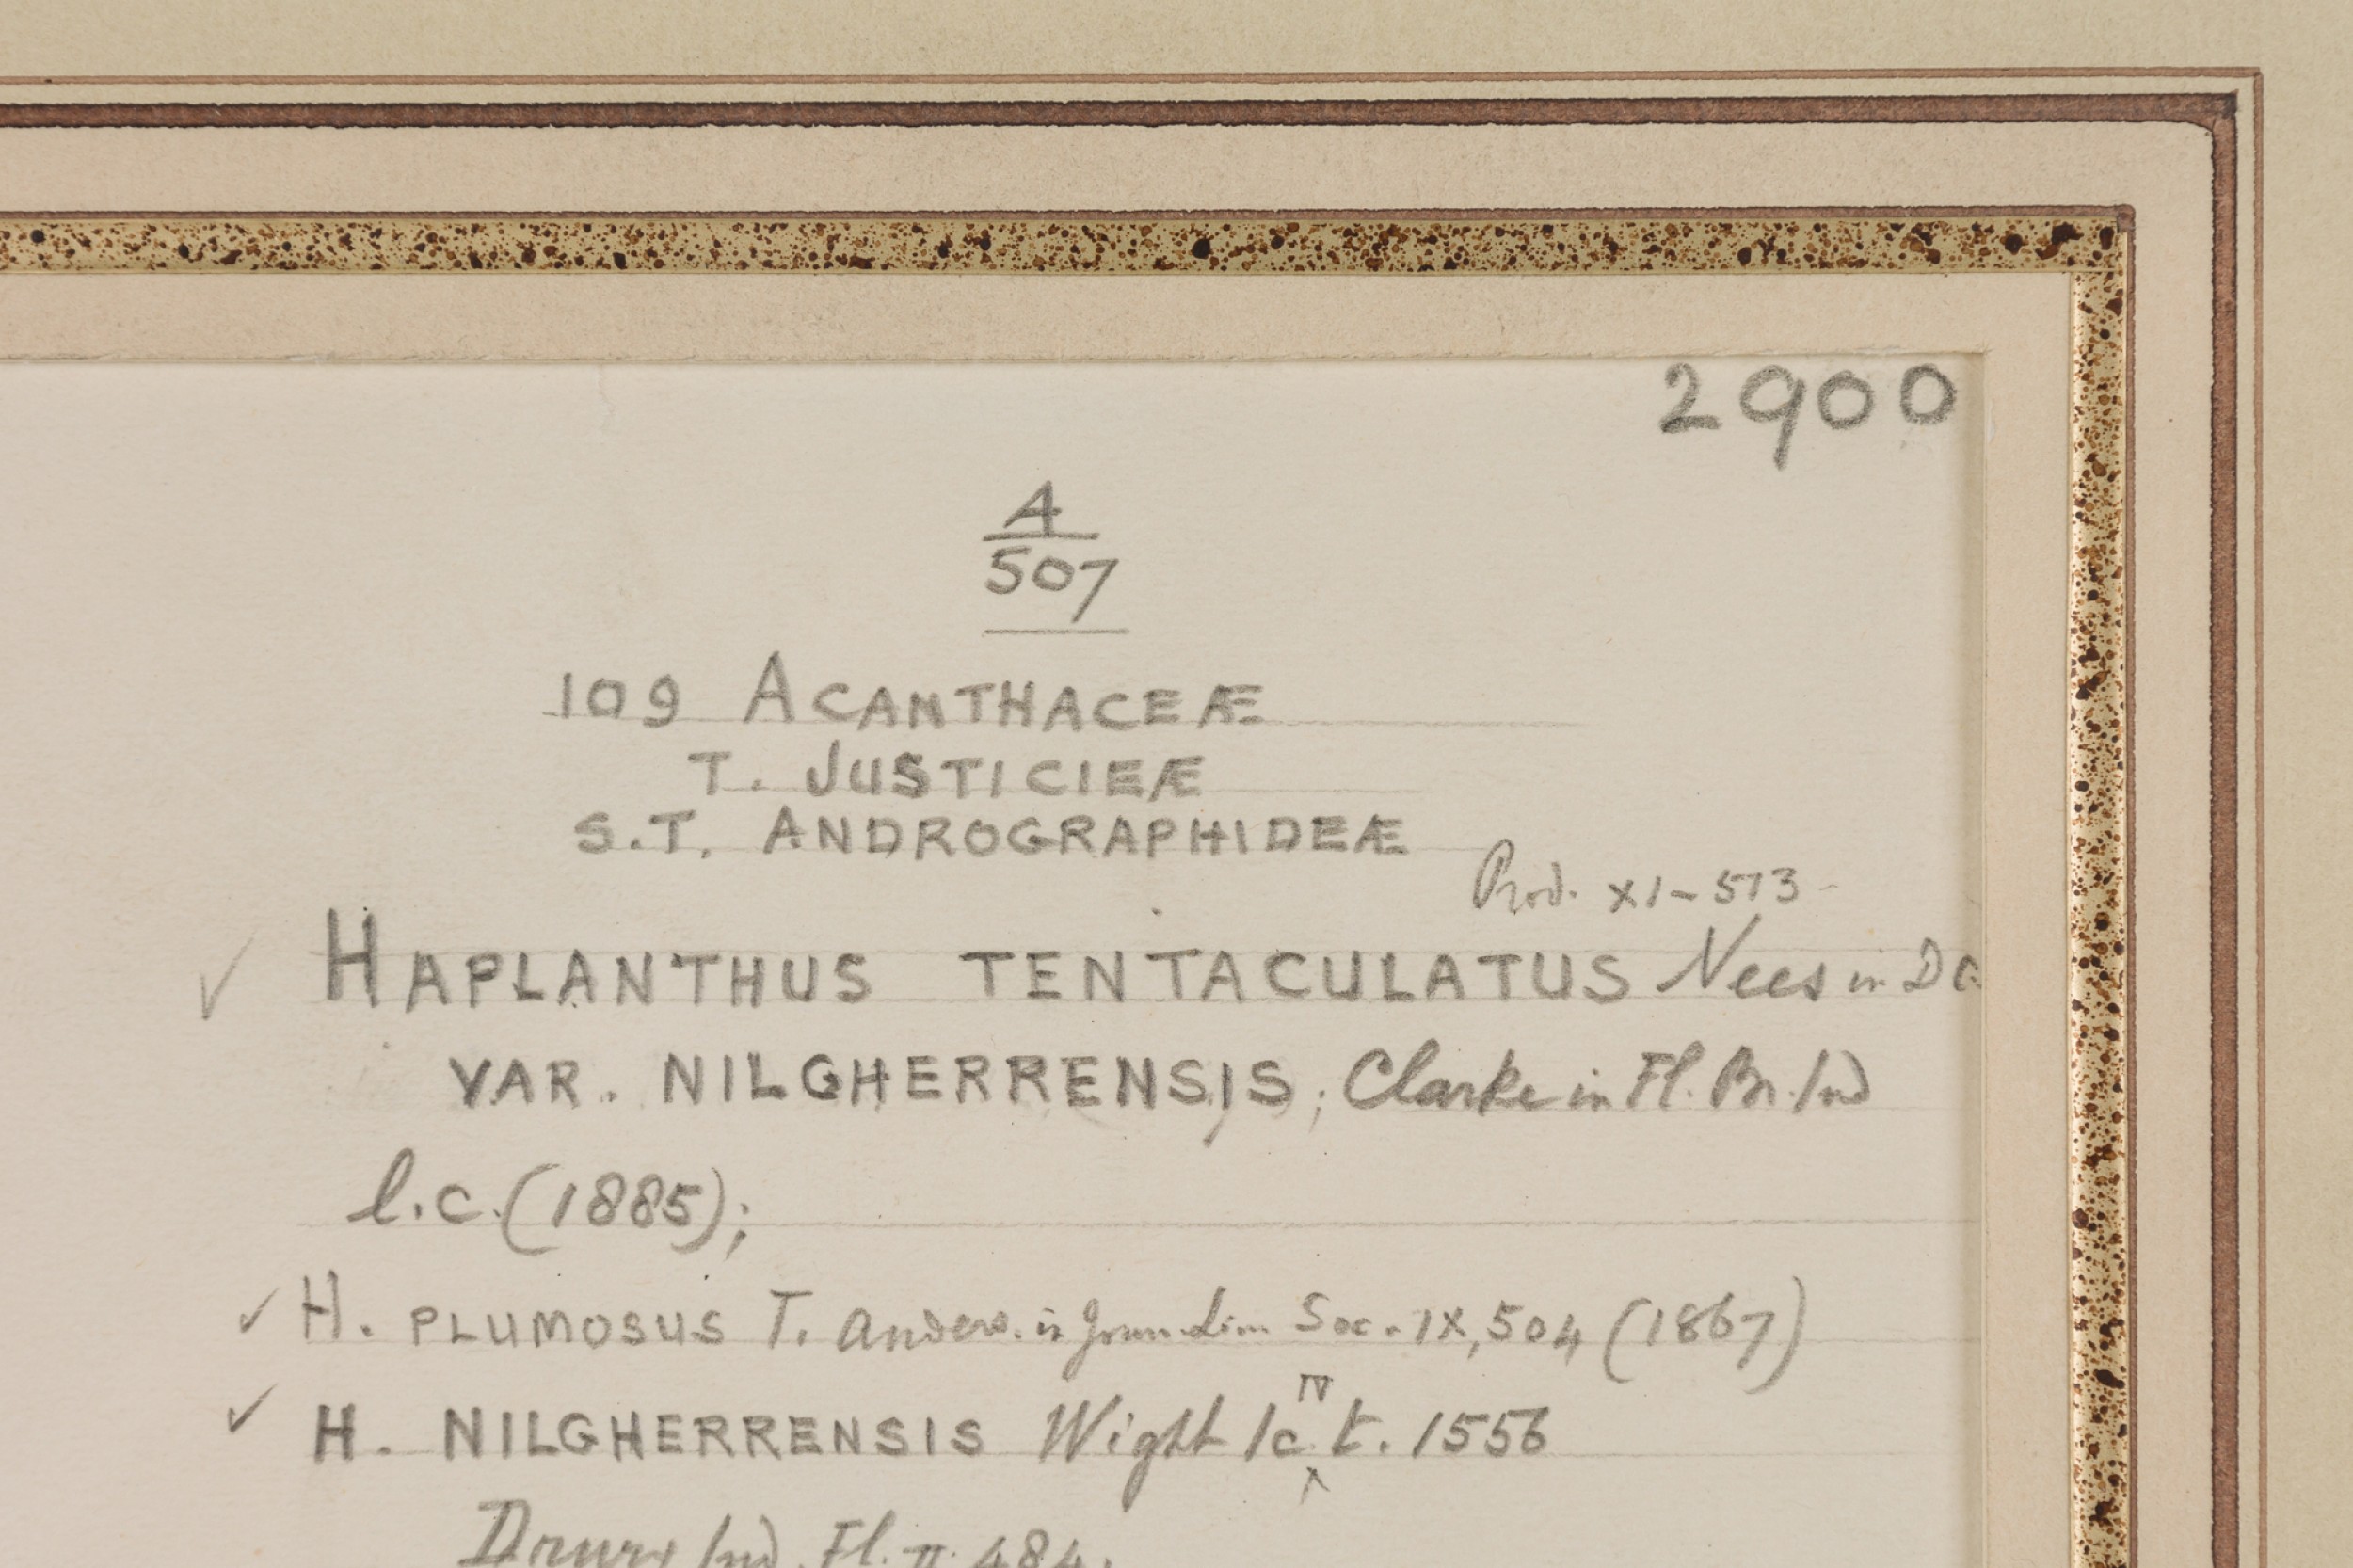 2900
A
507
109 ACANTHACEÆ
T. JUSTICIEÆ
S.T. ANDROGRAPHIDEÆ
Prod. XI-513-
✓ HAPLANTHUS TENTACULATUS Nees in DC
VAR. NILGHERRENSIS, ; Clarke in Fl. Br. Ind
l.c. (1885);
✓ H. PLUMOSUS T. Anders. in Journ. Linn. Soc. IX, 504 (1867)
IV
✓ H. NILGHERRENSIS Wight Ic. t. 1556
Drury Ind. Fl. II. 484.